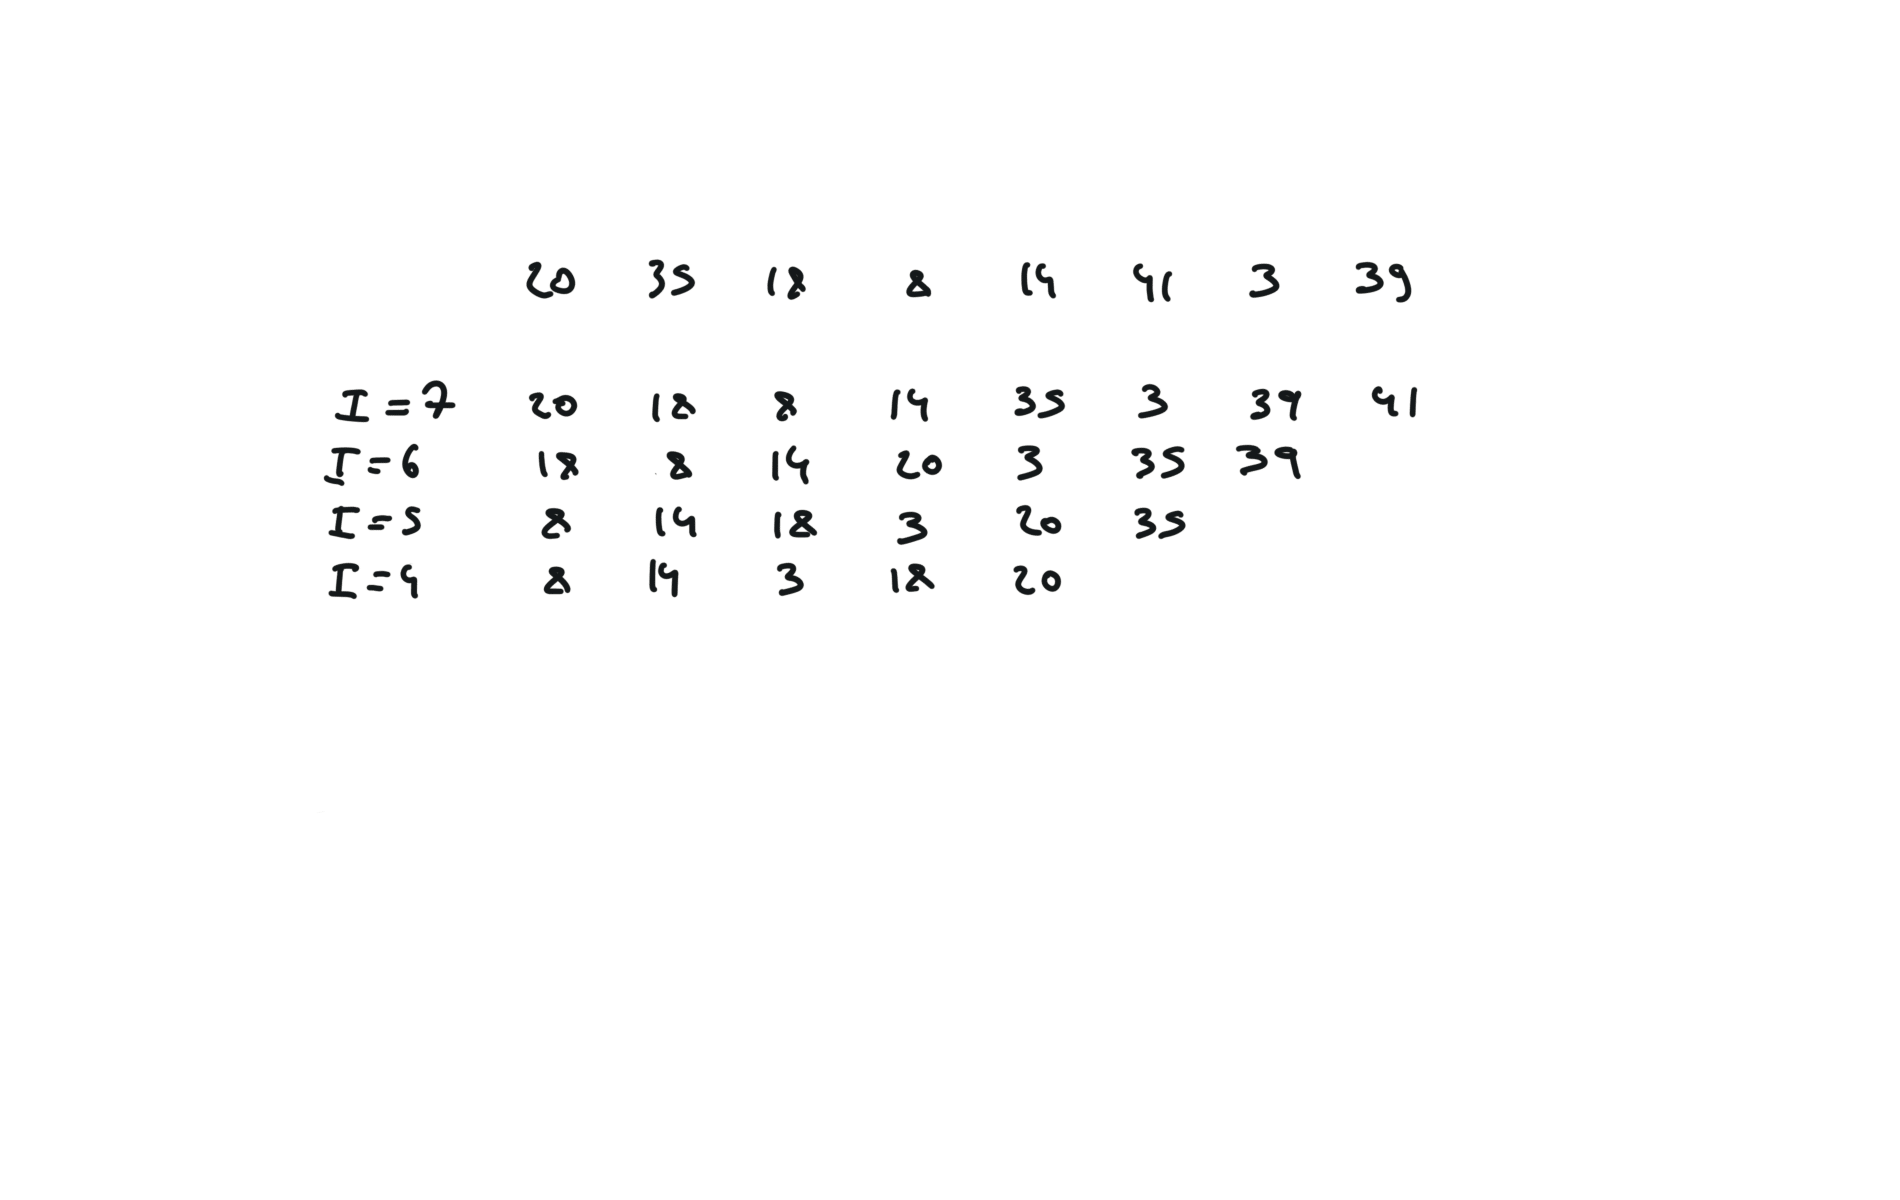 20 35 18 8 14 41 3 39
I=7 20 18 8 14 35 3 39 41
I=6 18 8 14 20 3 35 39
I=5 8 14 18 3 20 35
I=4 8 14 3 18 20